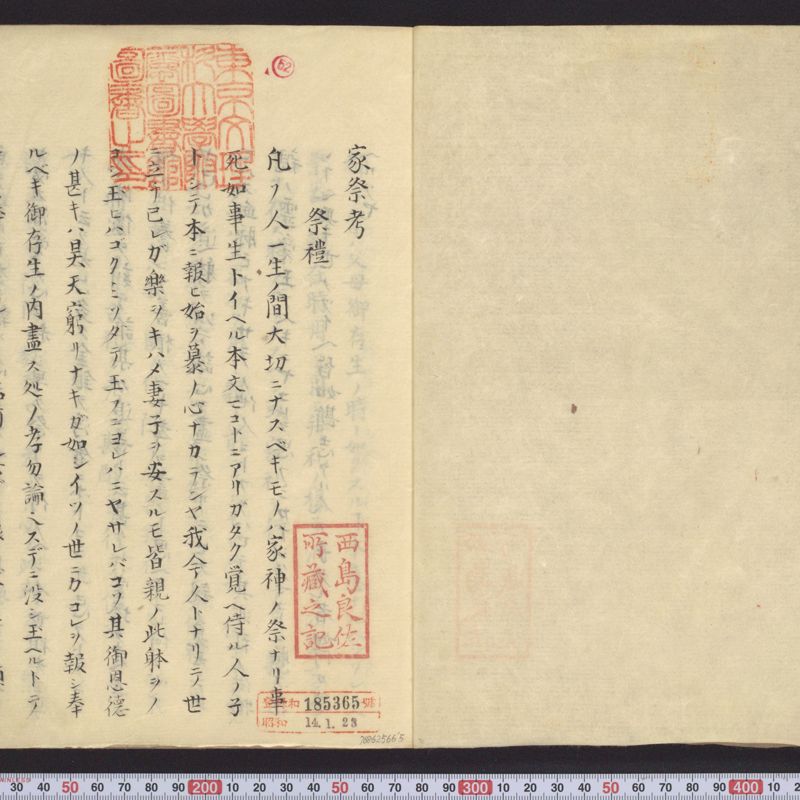 家祭考
祭禮
凡ノ人一生ノ間大切ニナスベキモノハ家神ノ祭ナリ事
死如事生トイヘル本文マコトニアリガタク覚ヘ侍ル人ノ子
トシテ本ニ報ヒ始ヲ慕ノ心ナカランヤ我今人トナリテ世
ニ立テ己レガ樂ヲキハメ妻子ヲ安スルモ皆親ノ此躰ヲノ
コシ玉ヒハコクミソダテ玉フニヨレハニヤサレバコソ其御恩德
ノ甚キハ昊天窮リナキガ如シイツノ世ニカコレヲ報シ奉
ルベキ御存生ノ内盡ス処ノ孝勿論ヘスデニ没シ玉ヘルトテノ
東京文理
科大學附
屬圖書館
圖書之印
62
西島良佐
所藏之記
185365
昭和 14.1.23